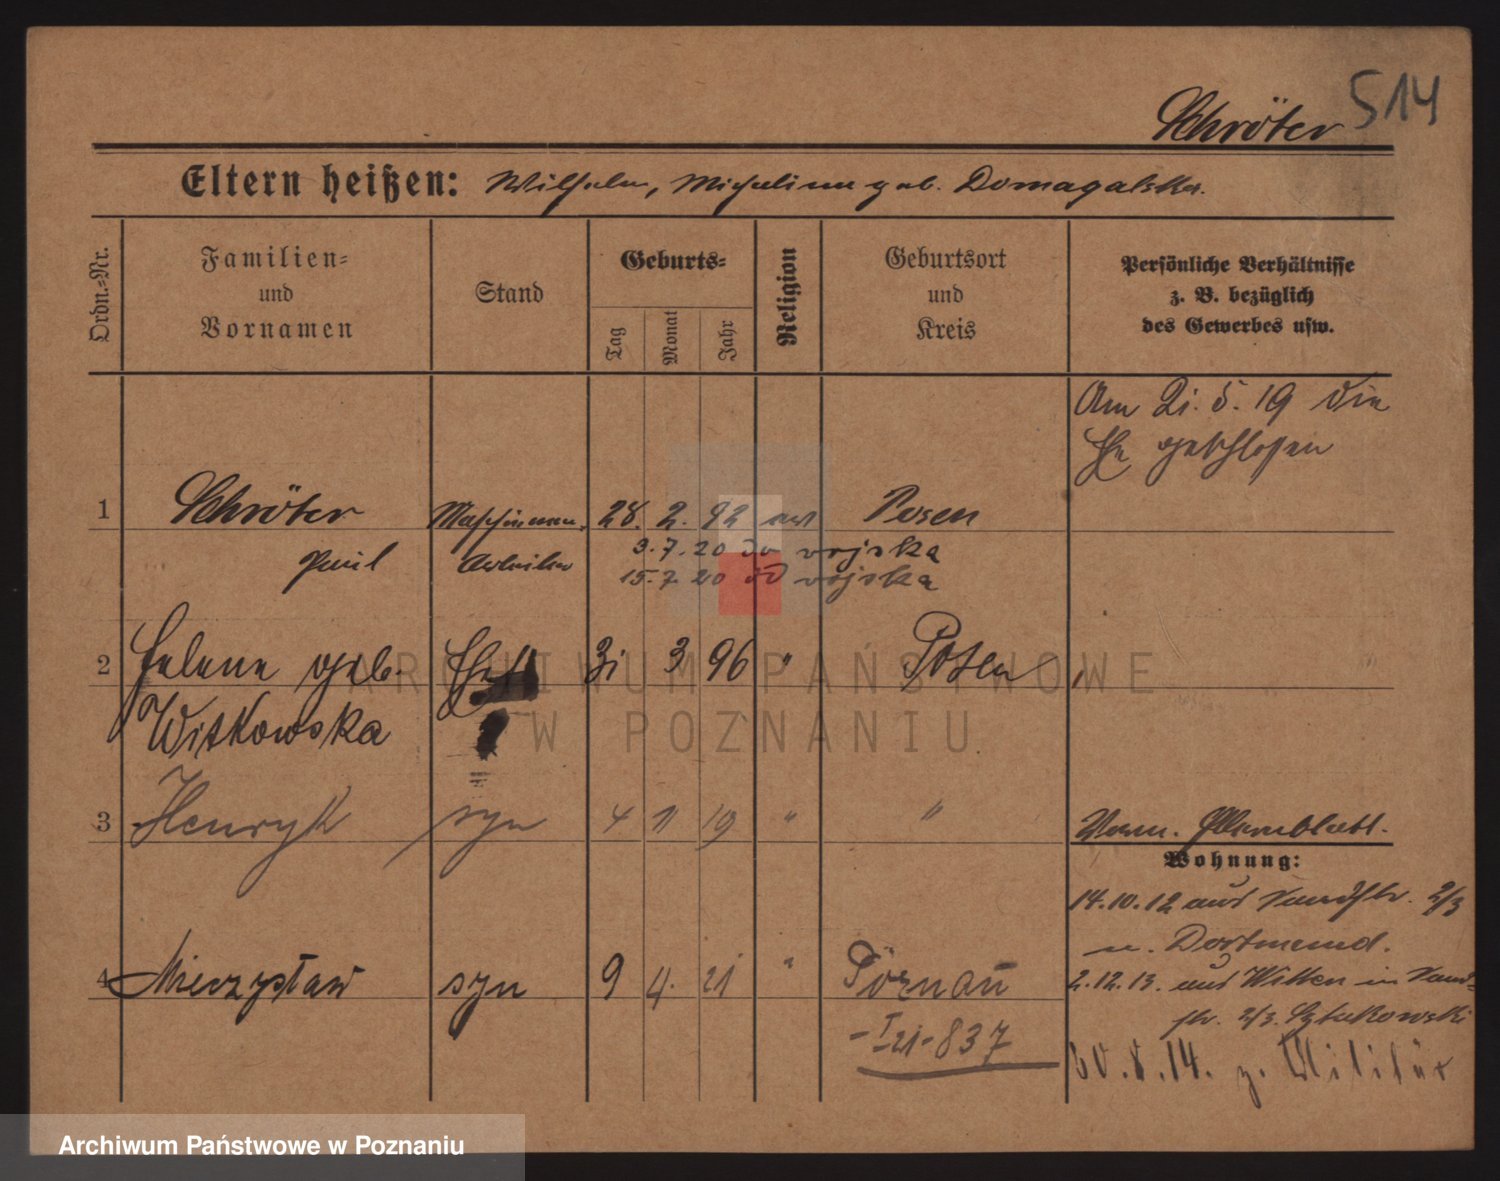 Schröter 514
Eltern heißen: Wilhelm, Michalina geb. Domagalska.
Ordn.-Nr.
Familien-
und
Vornamen
Stand
Geburts-
Tag
Monat
Jahr
Religion
Geburtsort
und
Kreis
Persönliche Verhältnisse
z. B. bezüglich
des Gewerbes usw.
Am 21. 5. 19 die
Ehe geschlossen
1 Schröter Maschinen- 28. 2. 92 Posen
Paul Arbeiter 9.7.20 do wojska
15.7 20 do wojska
2 Helene geb. Ehefr 31 3 96 " Posen
Witkowska
3 Henryk syn 4 11 19 " "
Wohnung:
14.10.12 aus 2/3
n. Dortmund.
4 Mieczysław syn 9 4. 21 " Poznań
2.12.13. aus Witten in
str. 2/3. Sztukowski
-I 21-837
30.8.14. z. Militär
ARCHIWUM PAŃSTWOWE
W POZNANIU
Archiwum Państwowe w Poznaniu